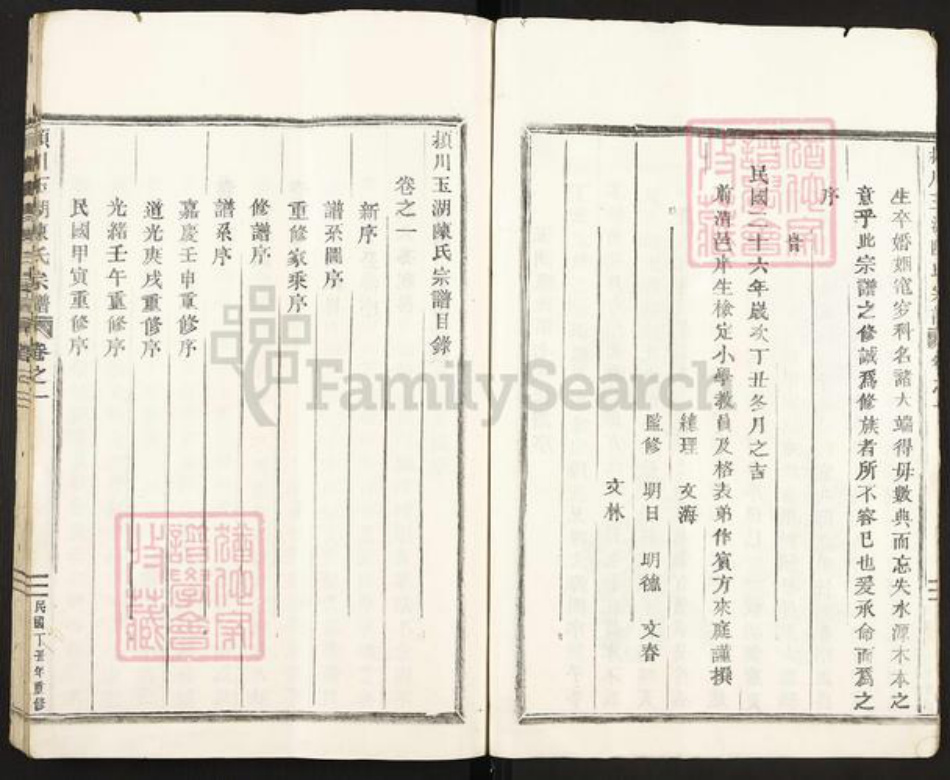 生卒婚姻窀穸科名諸大端得毋數典而忘失水源木本之
意乎此宗譜之修誠爲修族者所不容已也爰承命而爲之
序
時
民國二十六年歲次丁丑冬月之吉
前清邑庠生檢定小學教員及格表弟作賓方來庭謹撰
總理 文海
監修 明日 明德 文春
文林
潁川玉湖陳氏宗譜目錄
卷之一
新序
譜系圖序
重修家乘序
修譜序
譜系序
嘉慶壬申重修序
道光庚戌重修序
光緒壬午重修序
民國甲寅重修序
潁川玉湖陳氏宗譜 卷之一
民國丁丑年重修
FamilySearch